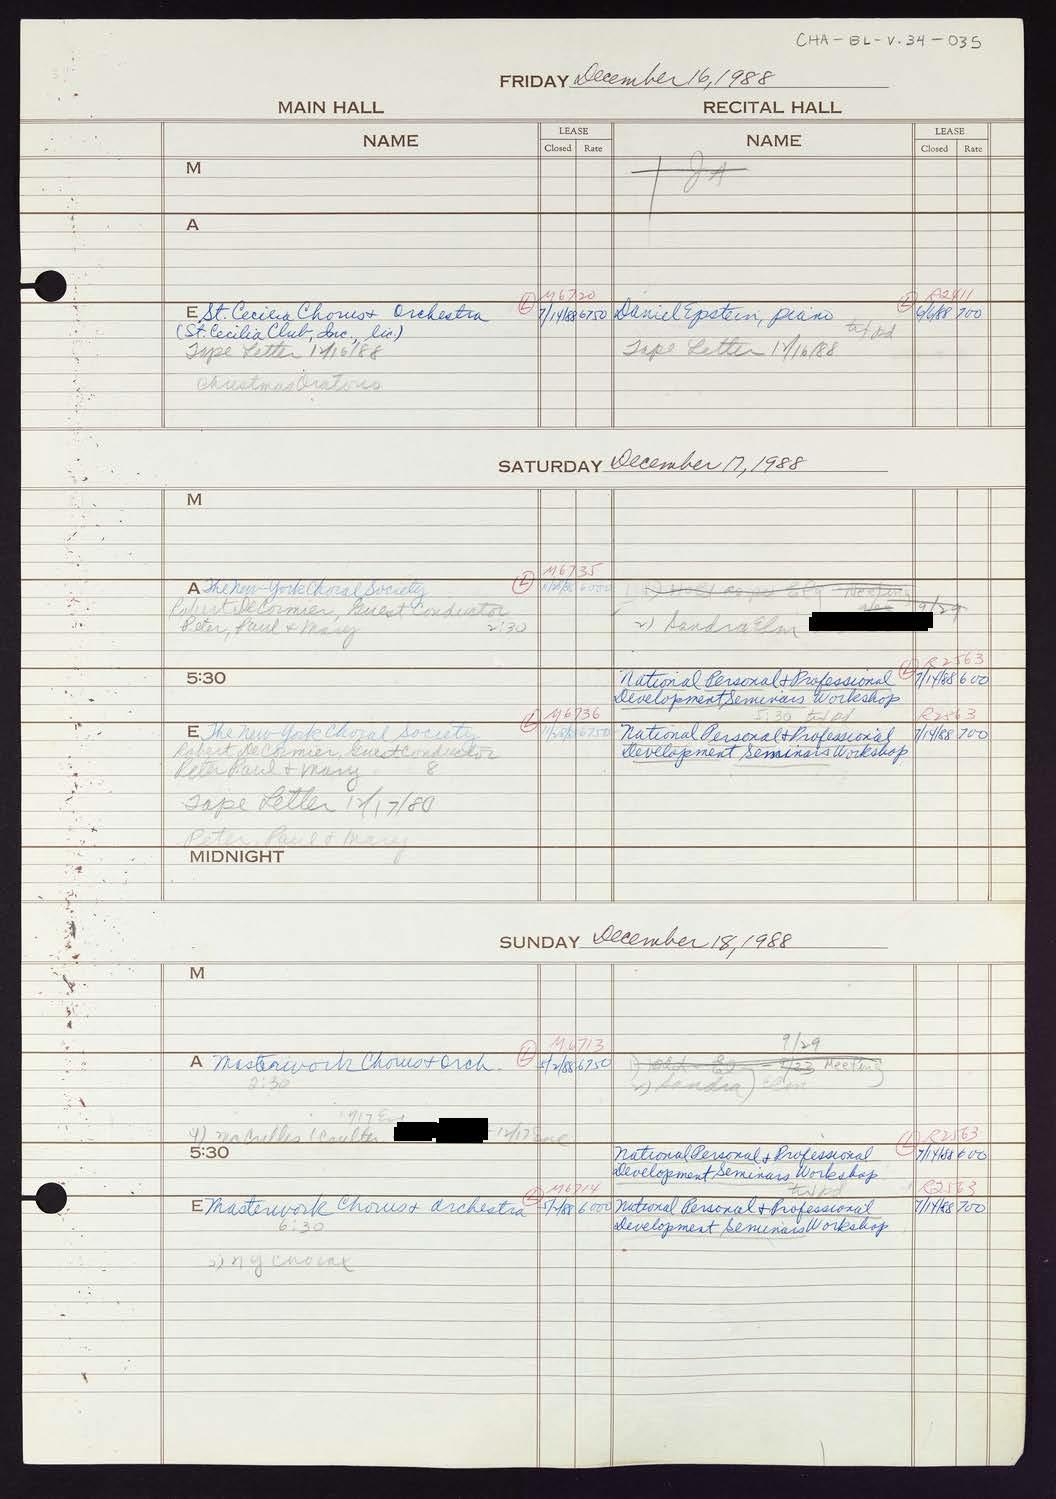 CHA-BL-V.34-035
FRIDAY December 16, 1988
MAIN HALL RECITAL HALL
NAME LEASE NAME LEASE
Closed Rate Closed Rate
M
JA
A
M6720 R2411
E St. Cecilia Chorus & Orchestra L 7/14/88 6750 Daniel Epstein, piano L 700
(St. Cecilia Club, Inc., lic.)
Tape Letter 12/16/88 Tape Letter 12/16/88
Christmas Oratorio
SATURDAY December 17, 1988
M
M6735
A The New York Choral Society L 6000 Meeting
Robert DeCormier, Guest Conductor 9/29
Peter, Paul & Mary 2:30 2) Sandra Elm
R2563
5:30 National Personal & Professional L 7/14/88 600
Development Seminars Workshop
M6736 5:30 R2563
E The New York Choral Society L 6750 National Personal & Professional 7/14/88 700
Robert DeCormier, Guest Conductor Development Seminars Workshop
Peter Paul & Mary 8
Tape Letter 12/17/80
Peter, Paul & Mary
MIDNIGHT
SUNDAY December 18, 1988
M
9/29
M6713
A Masterwork Chorus & Orch. L 5/2/88 6750 Meeting
2:30 2) Sandra Elm
12/17 Eve
R2563
5:30 National Personal & Professional L 7/14/88 600
Development Seminars Workshop
M6714 R2563
E Masterwork Chorus & Orchestra L 5/2/88 6000 National Personal & Professional 7/14/88 700
6:30 Development Seminars Workshop